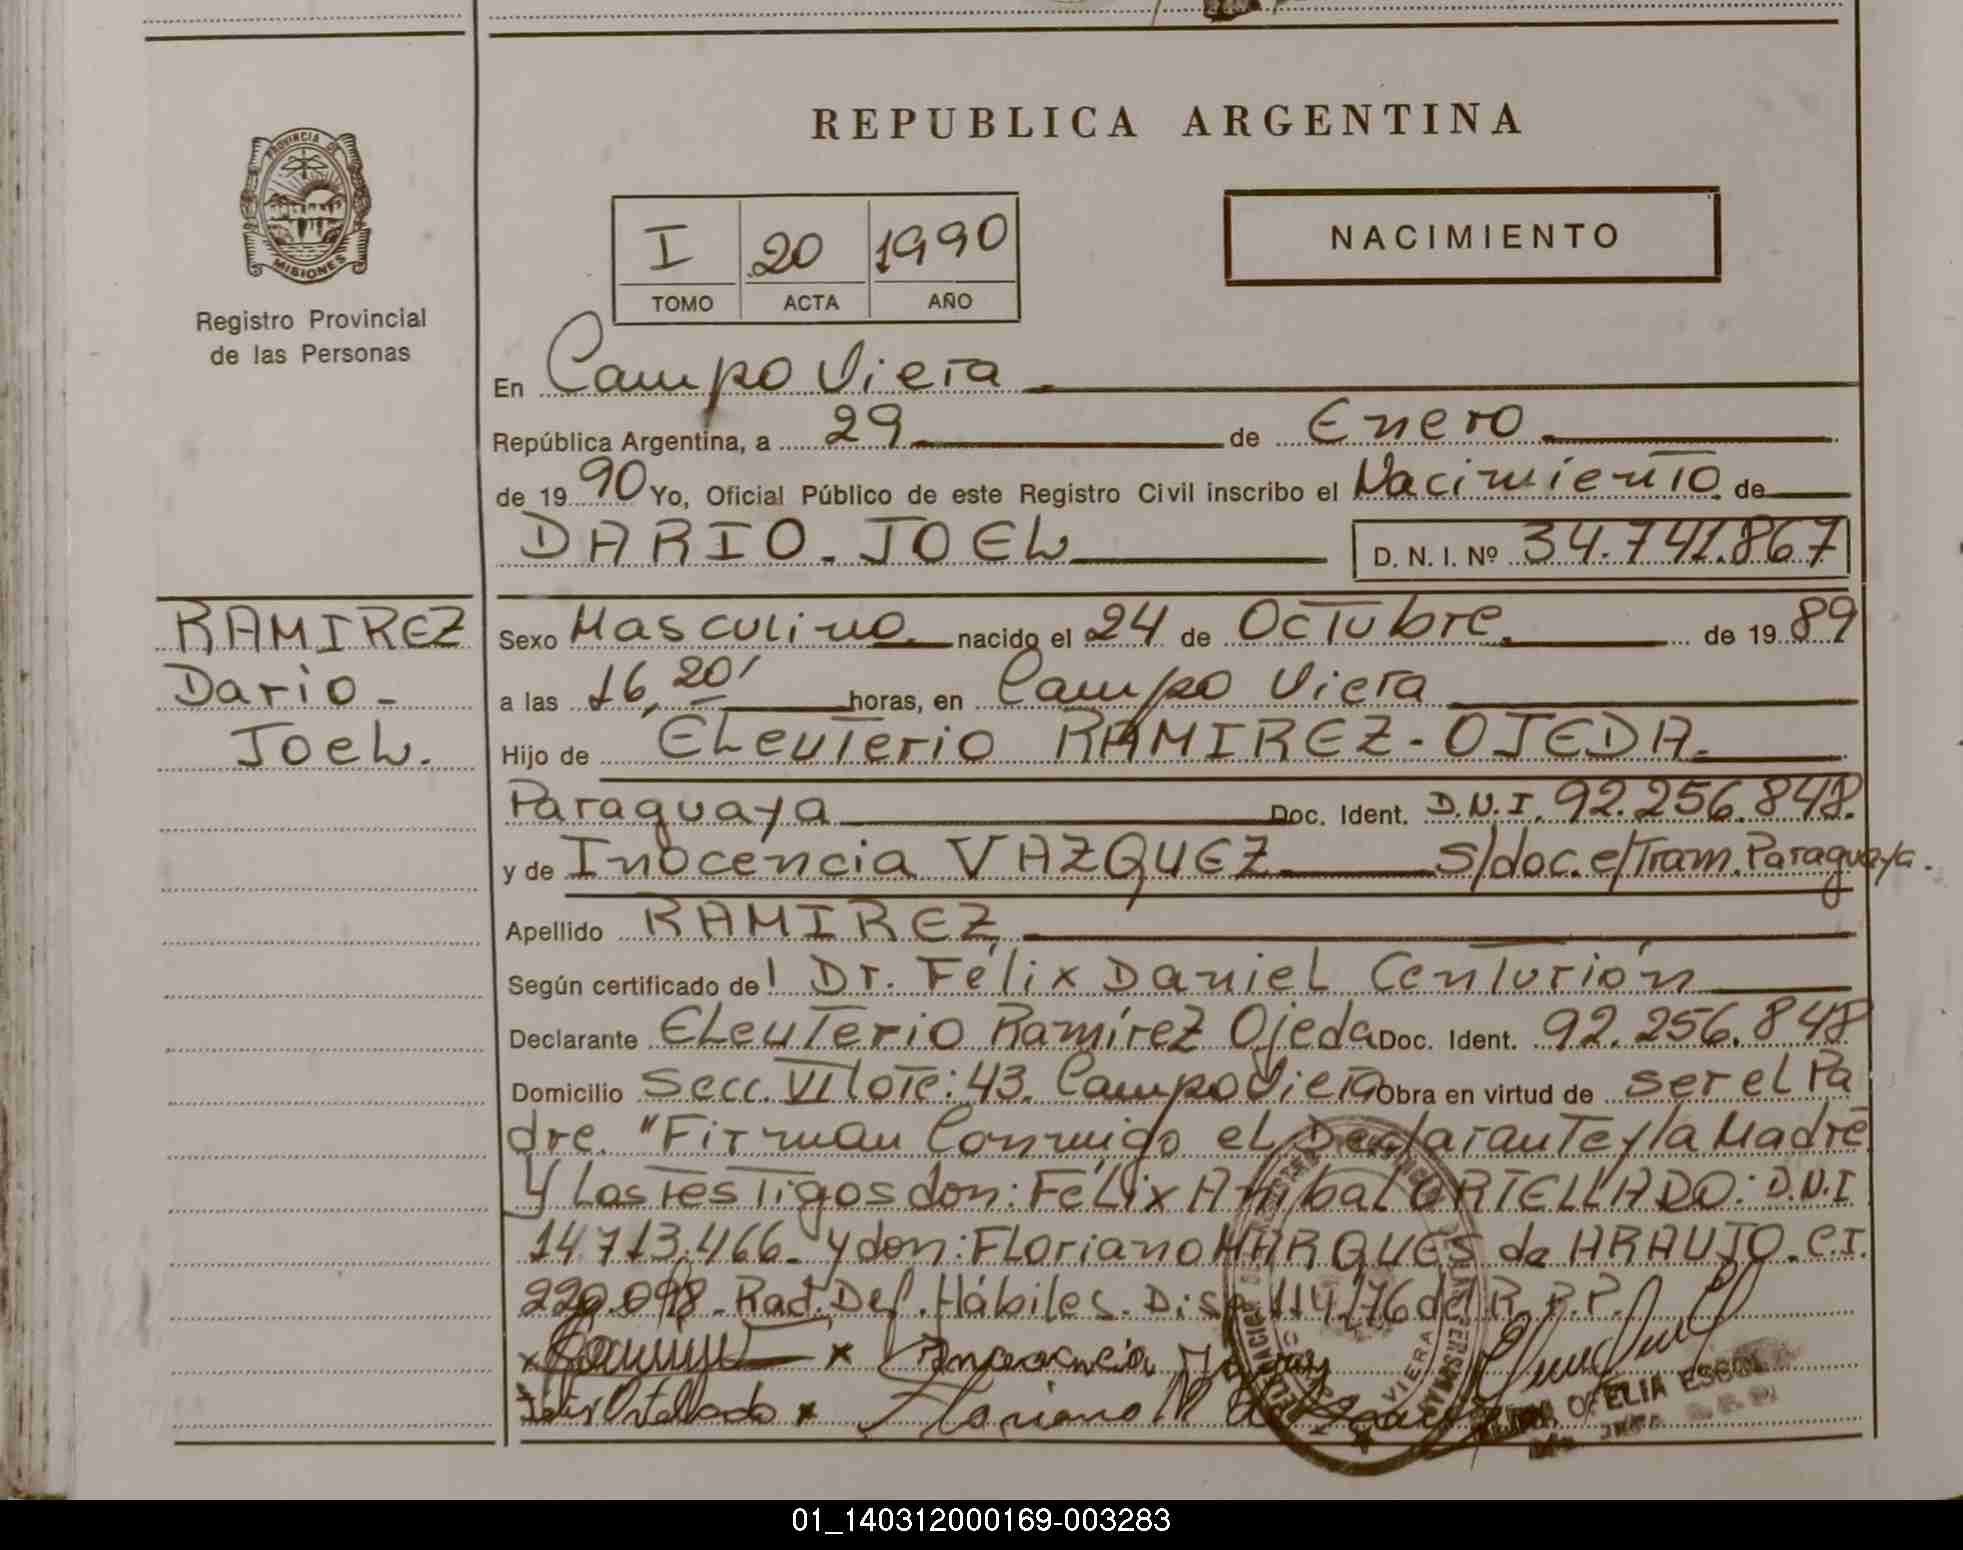 REPUBLICA ARGENTINA
PROVINCIA DE
MISIONES
Registro Provincial
de las Personas
I 20 1990
TOMO ACTA AÑO
NACIMIENTO
En Campo Viera
República Argentina, a 29 de Enero
de 19 90 Yo, Oficial Público de este Registro Civil inscribo el Nacimiento de
DARIO-JOEL D. N. I. Nº 34.741.867
RAMIREZ
Dario-
Joel.
Sexo Masculino nacido el 24 de Octubre de 19 89
a las 16,20' horas, en Campo Viera
Hijo de Eleuterio RAMIREZ-OJEDA.
Paraguaya Doc. Ident. D.N.I. 92.256.848.
y de Inocencia VAZQUEZ s/doc.e/Tram.Paraguaya.
Apellido RAMIREZ
Según certificado de l Dr. Félix Daniel Centurión
Declarante Eleuterio Ramírez Ojeda Doc. Ident. 92.256.848
Domicilio Secc. VI lote: 43. Campo Viera Obra en virtud de ser el Pa
dre. "Firman Conmigo el Declarante y la Madre
y Los Testigos don: Félix Anibal ORTELLADO: D.N.I
14713.466- y don: Floriano MARQUES de ARAUJO. C.I.
220.098- Rad. Def. Hábiles. Disp. 114/76 del R.P.P.
x x Inocencia
Felix Ortellado x Floriano M
VIERA
OFELIA
01_140312000169-003283